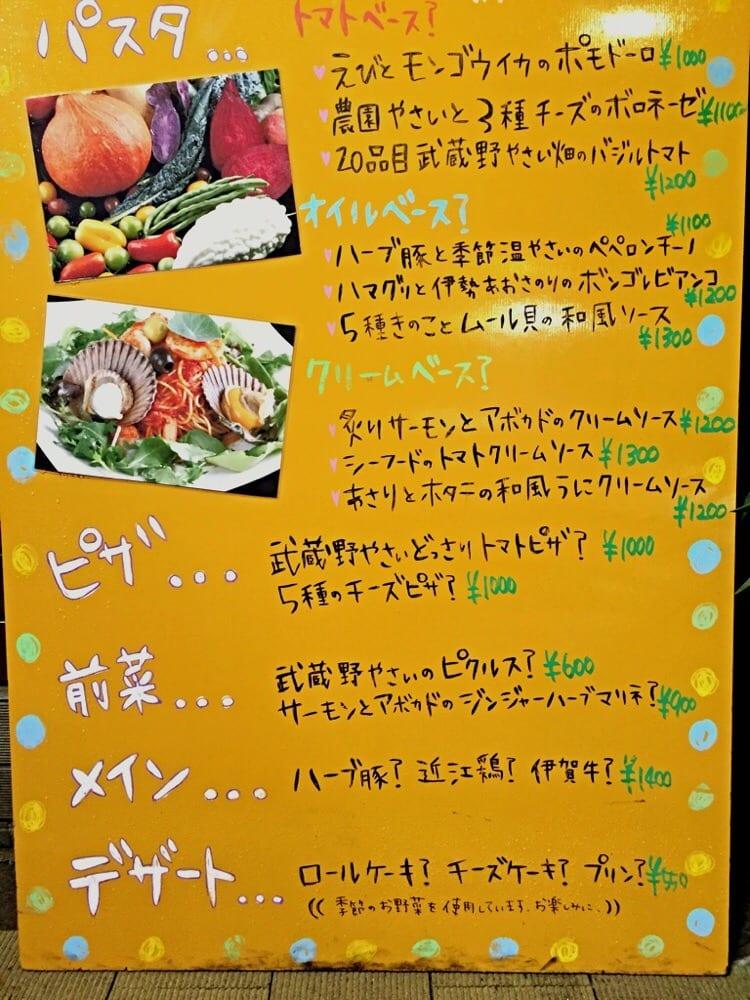 パスタ...
トマトベース?
えびとモンゴウイカのポモドーロ ¥1000
農園やさいと3種チーズのボロネーゼ ¥1100
20品目武蔵野やさい畑のバジルトマト
¥1200
オイルベース?
¥1100
ハーブ豚と季節温やさいのペペロンチーノ
ハマグリと伊勢あおさのりのボンゴレビアンコ
¥1200
5種きのことムール貝の和風ソース
¥1300
クリームベース?
炙りサーモンとアボカドのクリームソース ¥1200
シーフードのトマトクリームソース ¥1300
あさりとホタテの和風うにクリームソース
¥1200
ピザ...
武蔵野やさいどっさりトマトピザ? ¥1000
5種のチーズピザ? ¥1000
前菜...
武蔵野やさいのピクルス? ¥600
サーモンとアボカドのジンジャーハーブマリネ? ¥900
メイン...
ハーブ豚? 近江鶏? 伊賀牛? ¥1400
デザート...
ロールケーキ? チーズケーキ? プリン?
((季節のお野菜を使用しています、お楽しみに、))